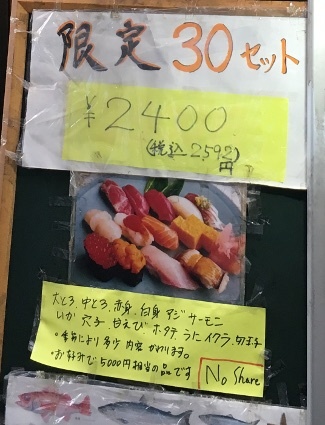 限定30セット
¥2400
(税込2592円
大とろ、中とろ、赤身、白身 アジ サーモン
いか 穴子 甘えび ホタテ うに イクラ、玉子
・季節により多少内容かわります。
・お好みで5000円相当の品です
No Share